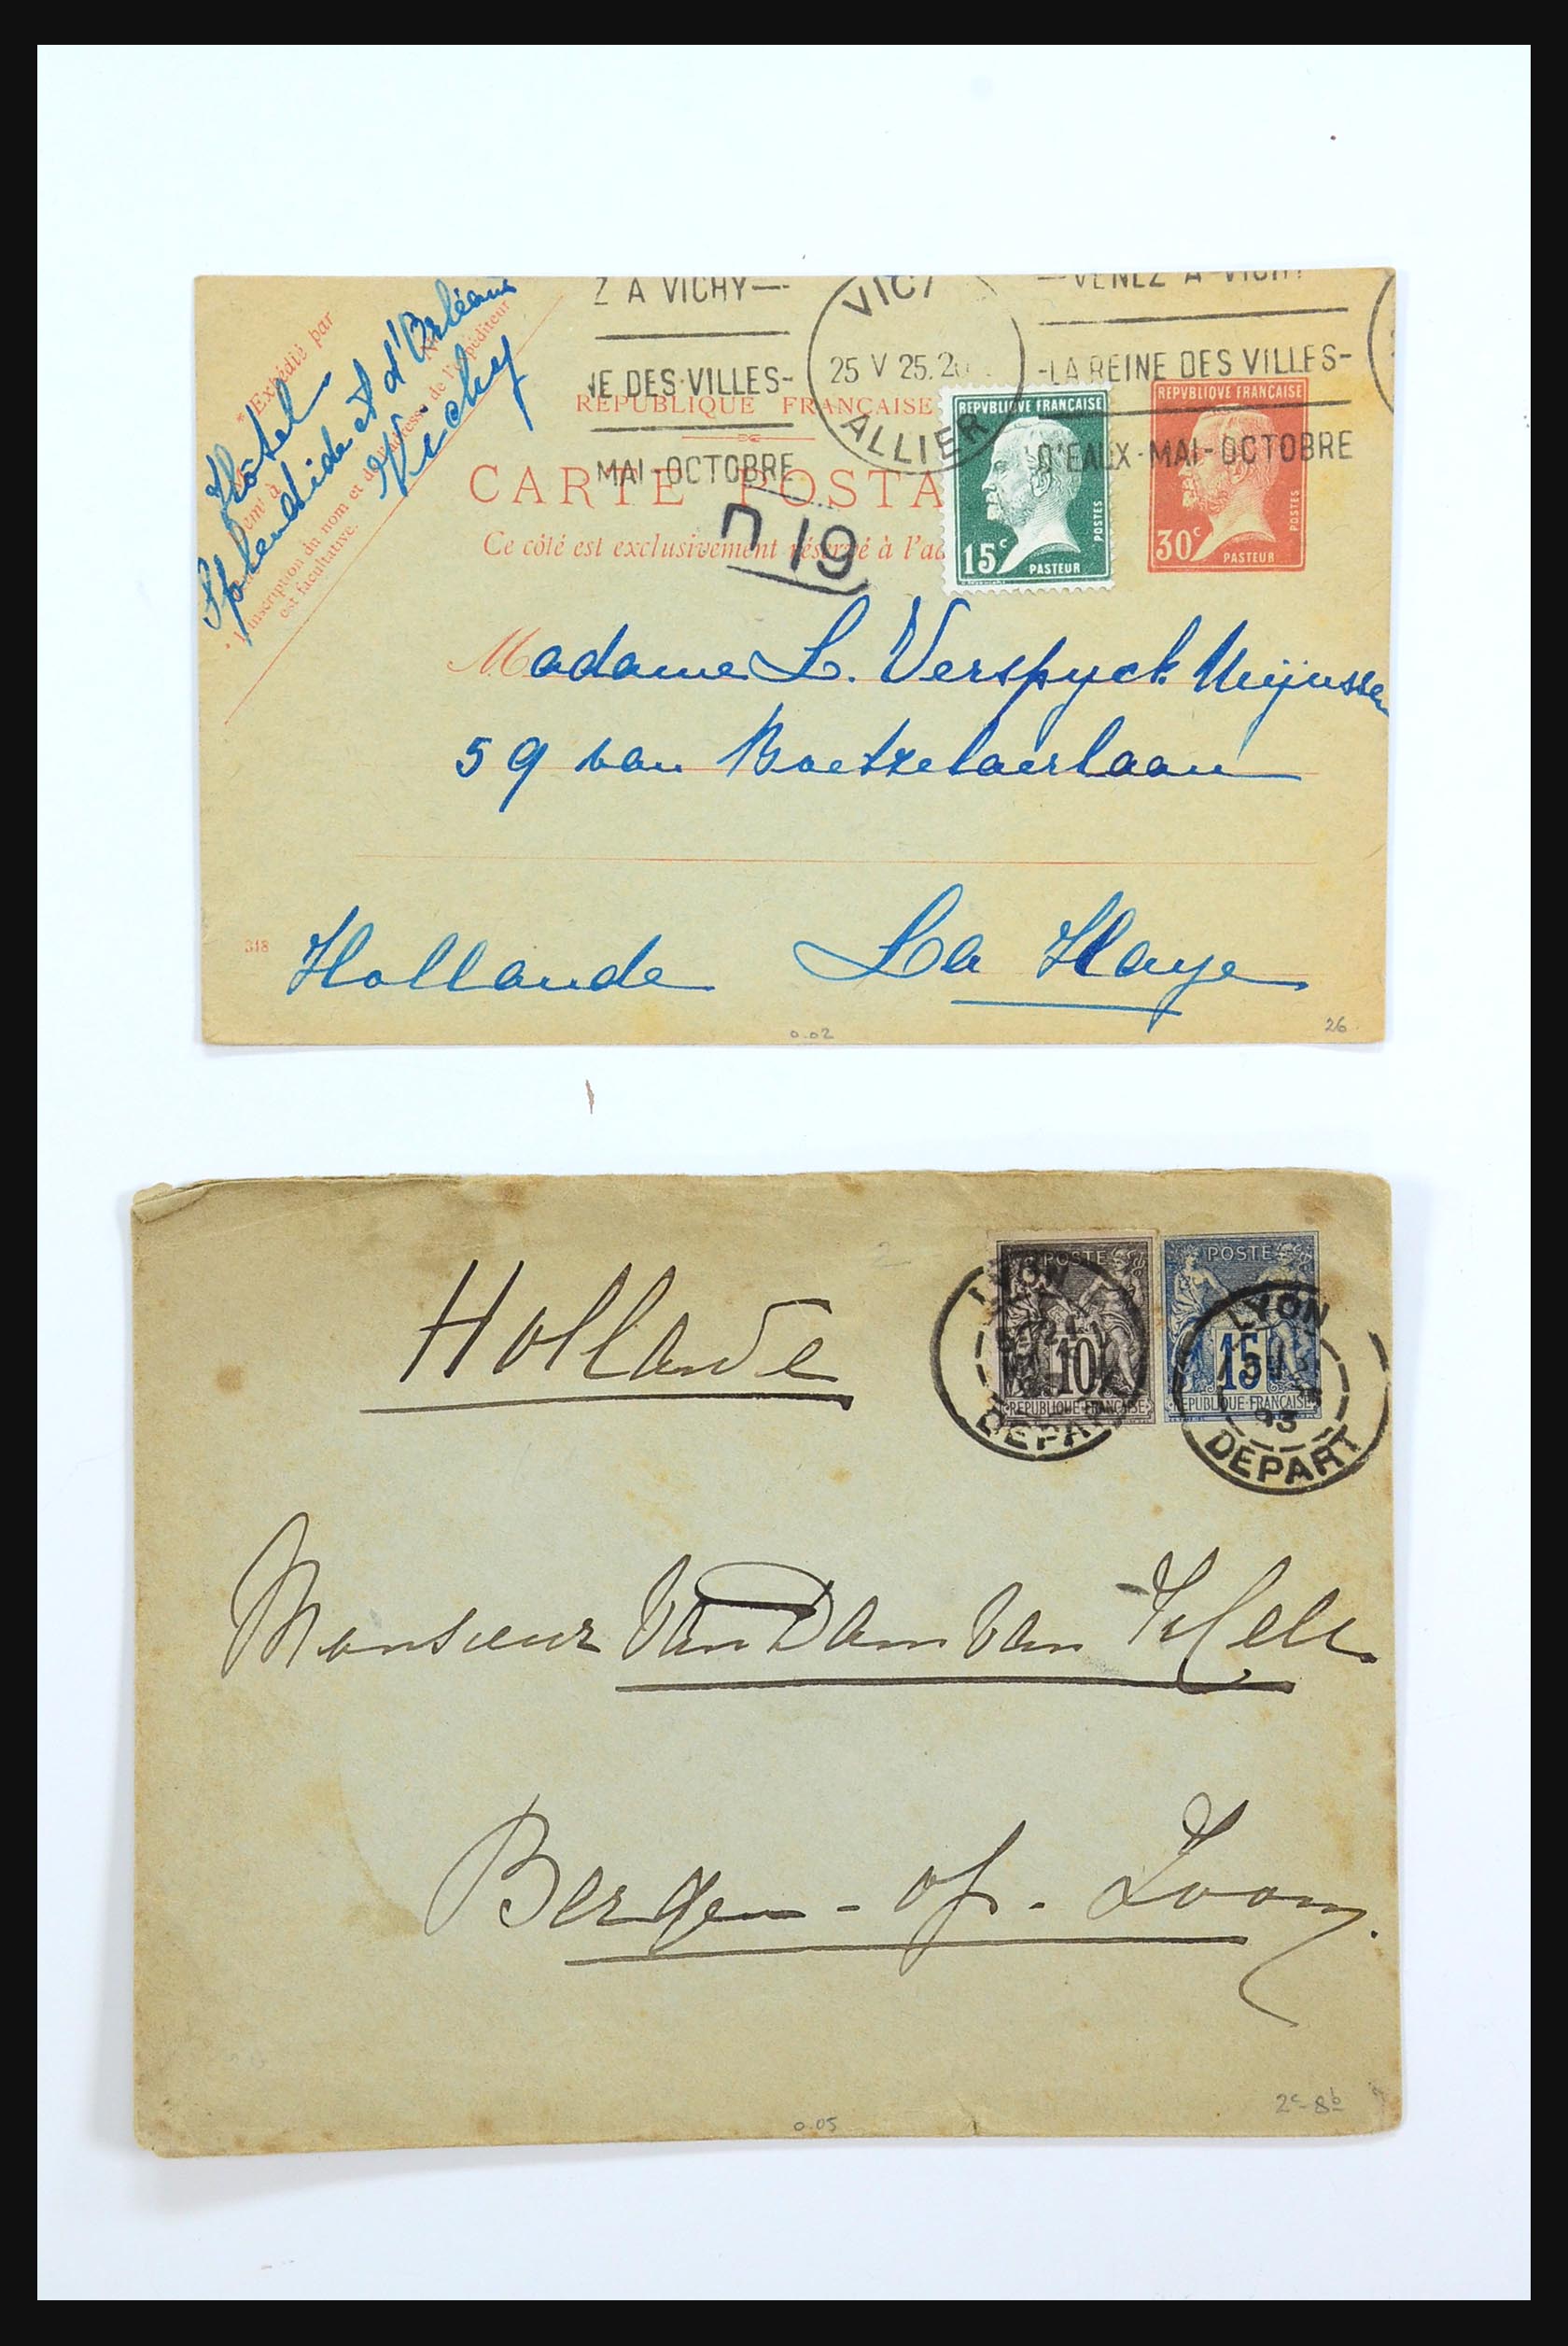 * Expédié par
Hôtel
Splendide et d'Orléans
Vichy
L'inscription du nom et de l'adresse de l'expéditeur
est facultative.
Z A VICHY
NE DES VILLES-
MAI-OCTOBRE
VICH
25 V 25.20
ALLIER
-VENEZ A VICHY
-LA REINE DES VILLES-
D'EAUX-MAI-OCTOBRE
RÉPUBLIQUE FRANÇAISE
CARTE POSTA
Ce côté est exclusivement réservé à l'ad
n 19
REPVBLIQVE FRANÇAISE
15c
POSTES
PASTEUR
REPVBLIQVE FRANÇAISE
30c
POSTES
PASTEUR
Madame L. Verspyck
59 van Boetzelaerlaan
Hollande La Haye
318
0.02
26
Hollande
POSTE
10
REPUBLIQUE FRANÇAISE
POSTE
15
REPUBLIQUE FRANÇAISE
LYON
DEPART
LYON
93
DEPART
Monsieur Van Dam Van
Bergen-op-Zoom.
0.05
2c-8b